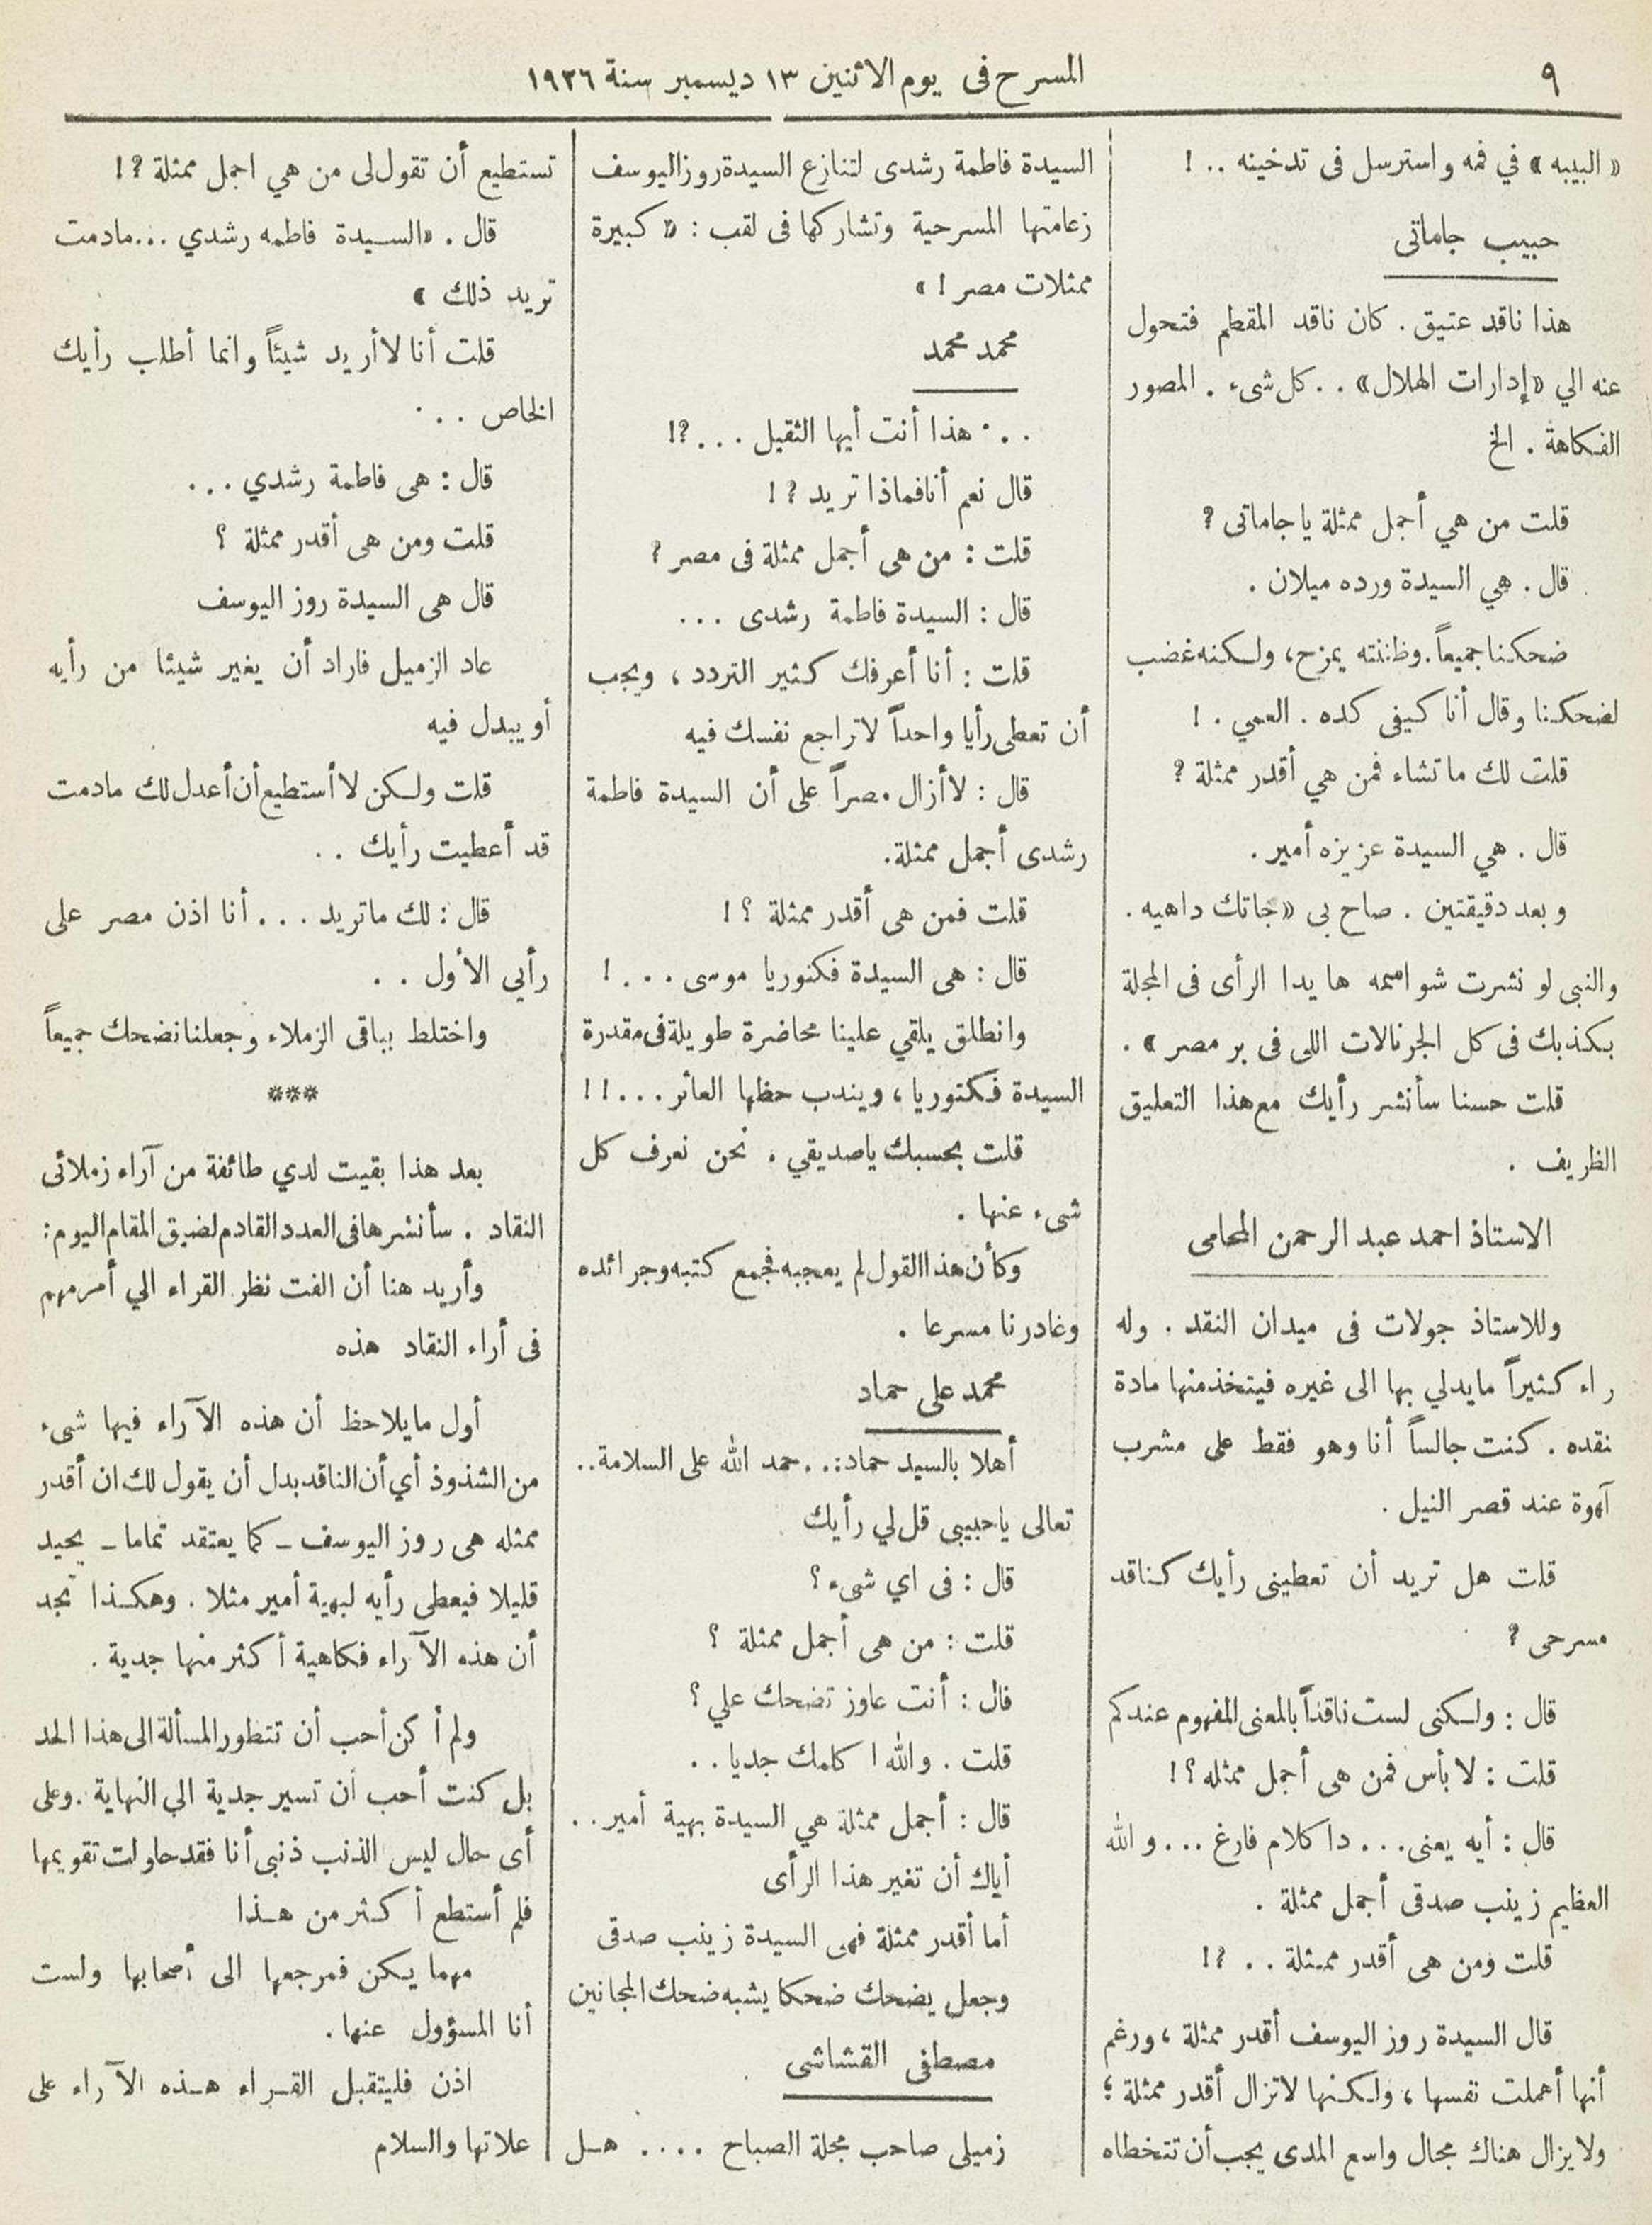 ٩
المسرح فى يوم الاثنين ١٣ ديسمبر سنة ١٩٢٦
« البيبه » في فمه واسترسل فى تدخينه .. !
حبيب جاماتى
هذا ناقد عتيق . كان ناقد المقطم فتحول
عنه الي «إدارات الهلال» . . كل شىء . المصور
الفكاهة . الخ
قلت من هي أجمل ممثلة يا جاماتى ؟
قال . هي السيدة ورده ميلان .
ضحكنا جميعاً . وظننته يمزح، ولكنه غضب
لضحكنا وقال أنا كيفى كده . العمي . !
قلت لك ما تشاء فمن هي أقدر ممثلة ؟
قال . هي السيدة عزيزه أمير .
وبعد دقيقتين . صاح بى «جاتك داهيه .
والنبى لو نشرت شو اسمه هايدا الرأى فى المجلة
بكذبك فى كل الجرنالات اللى فى بر مصر » .
قلت حسنا سأنشر رأيك مع هذا التعليق
الظريف .
الاستاذ احمد عبد الرحمن المحامى
وللاستاذ جولات فى ميدان النقد . وله
راء كثيراً مايدلي بها الى غيره فيتخذ منها مادة
نقده . كنت جالساً أنا وهو فقط على مشرب
آهوة عند قصر النيل .
قلت هل تريد أن تعطينى رأيك كناقد
مسرحى ؟
قال : ولكنى لست ناقداً بالمعنى المفهوم عندكم
قلت : لا بأس فمن هى أجمل ممثله ؟ !
قال : أيه يعنى . . . دا كلام فارغ . . . والله
العظيم زينب صدقى أجمل ممثلة .
قلت ومن هى أقدر ممثلة . . ؟ !
قال السيدة روز اليوسف أقدر ممثلة ، ورغم
أنها أهملت نفسها ، ولكنها لاتزال أقدر ممثلة ؛
ولا يزال هناك مجال واسع المدى يجب أن تتخطاه
السيدة فاطمة رشدى لتنازع السيدة روز اليوسف
زعامتها المسرحية وتشاركها فى لقب : « كبيرة
ممثلات مصر ! »
محمد محمد
. . . هذا أنت أيها الثقيل . . . ؟ !
قال نعم أنا فماذا تريد ؟ !
قلت : من هى أجمل ممثلة فى مصر ؟
قال : السيدة فاطمة رشدى . . .
قلت : أنا أعرفك كثير التردد ، ويجب
أن تعطى رأيا واحداً لا تراجع نفسك فيه
قال : لا أزال مصراً على أن السيدة فاطمة
رشدى أجمل ممثلة.
قلت فمن هى أقدر ممثلة ؟ !
قال : هى السيدة فكتوريا موسى . . . !
وانطلق يلقي علينا محاضرة طويلة فى مقدرة
السيدة فكتوريا ، ويندب حظها العاثر . . . ! !
قلت بحسبك ياصديقي . نحن نعرف كل
شىء عنها .
وكأن هذا القول لم يعجبه فجمع كتبه وجرائده
وغادرنا مسرعا .
محمد على حماد
أهلا بالسيد حماد:. . حمد الله على السلامة . .
تعالى يا حبيبى قل لي رأيك
قال : فى اي شىء ؟
قلت : من هى أجمل ممثلة ؟
قال : أنت عاوز تضحك علي ؟
قلت . والله ا كلمك جديا . .
قال : أجمل ممثلة هي السيدة بهية أمير . .
أياك أن تغير هذا الرأى
أما أقدر ممثلة فهى السيدة زينب صدقى
وجعل يضحك ضحكا يشبه ضحك المجانين
مصطفى القشاشى
زميلى صاحب مجلة الصباح . . . . هل
تستطيع أن تقول لى من هي اجمل ممثلة ؟ !
قال . «السيدة فاطمه رشدي . . . مادمت
تريد ذلك »
قلت أنا لا أريد شيئاً وانما أطلب رأيك
الخاص . . .
قال : هى فاطمة رشدي . . .
قلت ومن هى أقدر ممثلة ؟
قال هى السيدة روز اليوسف
عاد الزميل فاراد أن يغير شيئا من رأيه
أو يبدل فيه
قلت ولكن لا أستطيع أن أعدل لك مادمت
قد أعطيت رأيك . .
قال : لك ماتريد . . . أنا اذن مصر على
رأيى الأول . .
واختلط بباقى الزملاء وجعلنا نضحك جميعاً
***
بعد هذا بقيت لدي طائفة من آراء زملائى
النقاد . سأنشرها فى العدد القادم لضيق المقام اليوم :
وأريد هنا أن الفت نظر القراء الي أمر مهم
فى أراء النقاد هذه
أول مايلاحظ أن هذه الآراء فيها شىء
من الشذوذ أي أن الناقد بدل أن يقول لك ان أقدر
ممثله هى روز اليوسف ـ كما يعتقد تماما ـ يحيد
قليلا فيعطى رأيه لبهية أمير مثلا . وهكذا تجد
أن هذه الآراء فكاهية أكثر منها جدية .
ولم أكن أحب أن تتطور المسألة الى هذا الحد
بل كنت أحب أن تسير جدية الي النهاية . وعلى
أى حال ليس الذنب ذنبى أنا فقد حاولت تقويمها
فلم أستطع أكثر من هذا
مهما يكن فمرجعها الى أصحابها ولست
أنا المسؤول عنها .
اذن فليتقبل القراء هذه الآراء على
علاتها والسلام